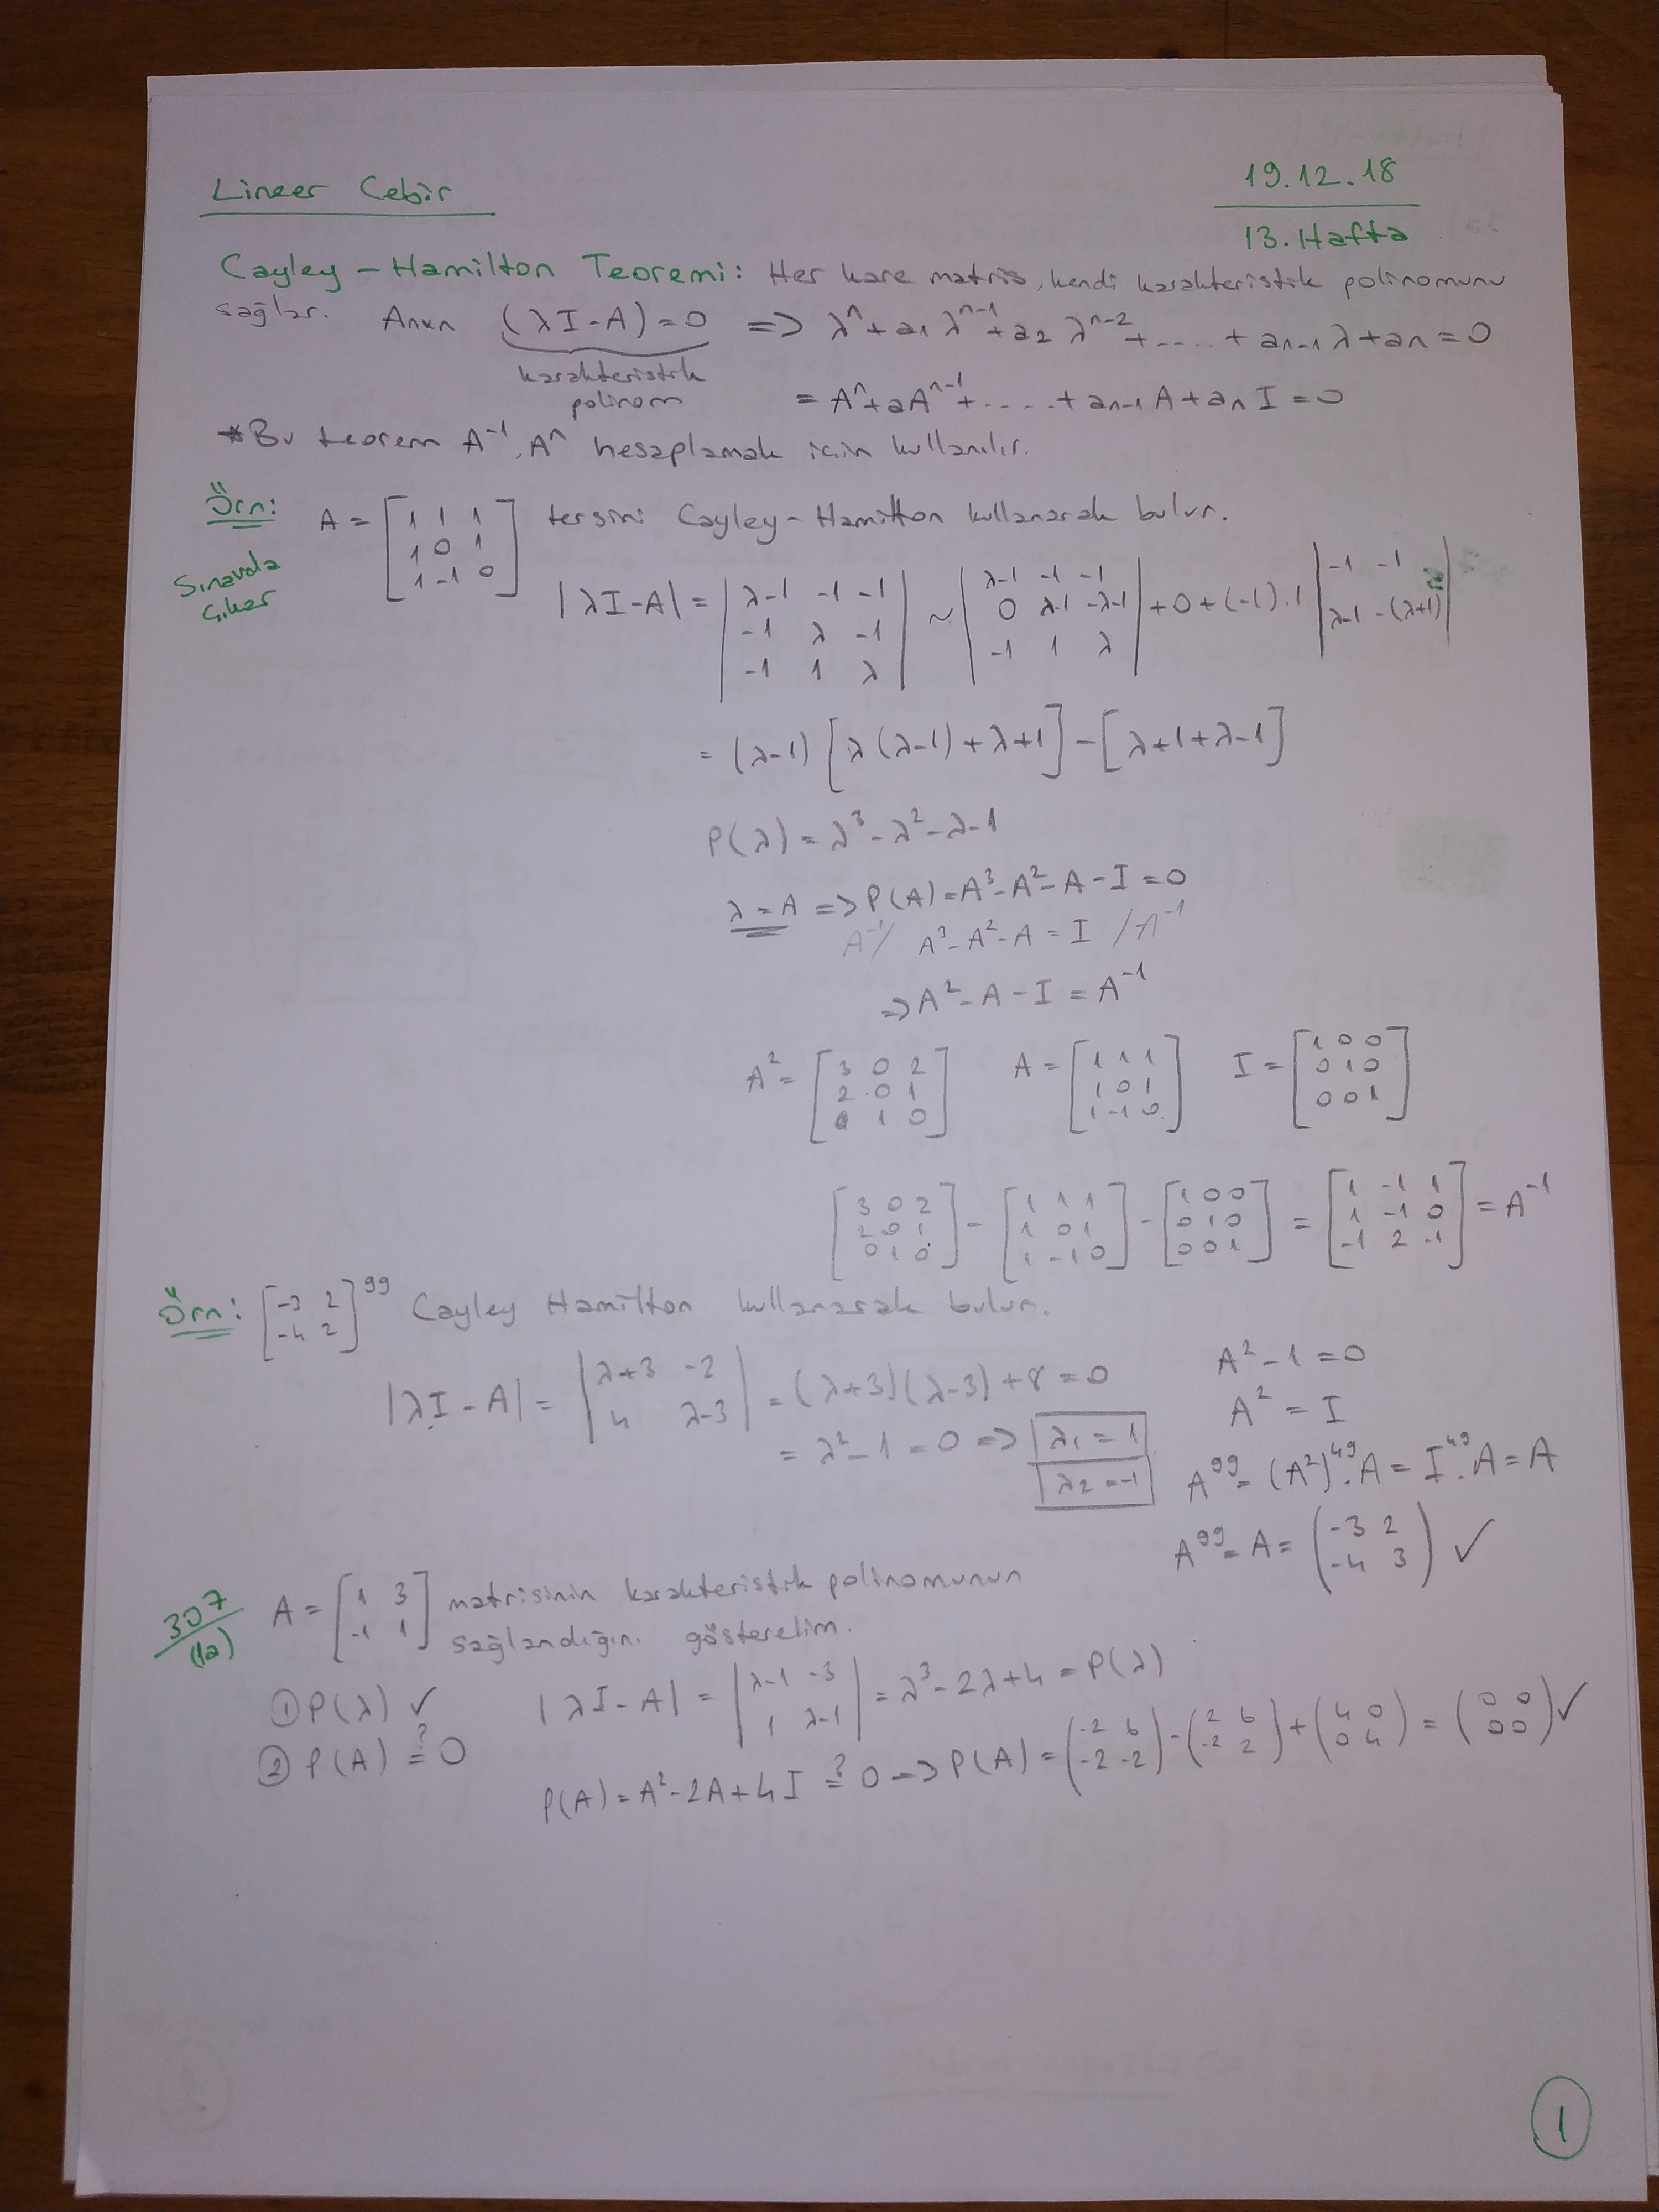 Lineer Cebir
19.12.18
13.Hafta
Cayley-Hamilton Teoremi: Her kare matris, kendi karakteristik polinomunu
sağlar. Anxn (λI-A)=0 => λⁿ+a₁λⁿ⁻¹+a₂λⁿ⁻²+....+aₙ₋₁λ+aₙ=0
karakteristik polinom
=Aⁿ+aAⁿ⁻¹+....+aₙ₋₁A+aₙI=0
*Bu teorem A⁻¹, Aⁿ hesaplamak için kullanılır.
Örn: A = [1 1 1; 1 0 1; 1 -1 0] tersini Cayley-Hamilton kullanarak bulun.
Sınavda çıkar
|λI-A| = |λ-1 -1 -1; -1 λ -1; -1 1 λ| ~ |λ-1 -1 -1; 0 λ-1 -λ-1; -1 1 λ| +0+(-1).1 |-1 -1; λ-1 -(λ+1)|
= (λ-1)[λ(λ-1)+λ+1]-[λ+1+λ-1]
P(λ)=λ³-λ²-λ-1
λ=A => P(A)=A³-A²-A-I=0
A⁻¹/ A³-A²-A=I /A⁻¹
=> A²-A-I=A⁻¹
A² = [3 0 2; 2 0 1; 0 1 0] A = [1 1 1; 1 0 1; 1 -1 0] I = [1 0 0; 0 1 0; 0 0 1]
[3 0 2; 2 0 1; 0 1 0] - [1 1 1; 1 0 1; 1 -1 0] - [1 0 0; 0 1 0; 0 0 1] = [1 -1 1; 1 -1 0; -1 2 -1] = A⁻¹
Örn: [-3 2; -4 2]⁹⁹ Cayley Hamilton kullanarak bulun.
|λI-A| = |λ+3 -2; 4 λ-3| = (λ+3)(λ-3)+8=0
= λ²-1=0 => λ₁=1
λ₂=-1
A²-1=0
A²=I
A⁹⁹=(A²)⁴⁹.A=I⁴⁹.A=A
A⁹⁹=A=(-3 2; -4 3) ✓
307
(1a)
A = [1 3; -1 1] matrisinin karakteristik polinomunun
sağlandığını gösterelim.
① P(λ) ✓ |λI-A| = |λ-1 -3; 1 λ-1| = λ²-2λ+4=P(λ)
② P(A) ≟ 0
P(A)=A²-2A+4I ≟ 0 -> P(A)=(-2 6; -2 -2)-(2 6; -2 2)+(4 0; 0 4)=(0 0; 0 0) ✓
1